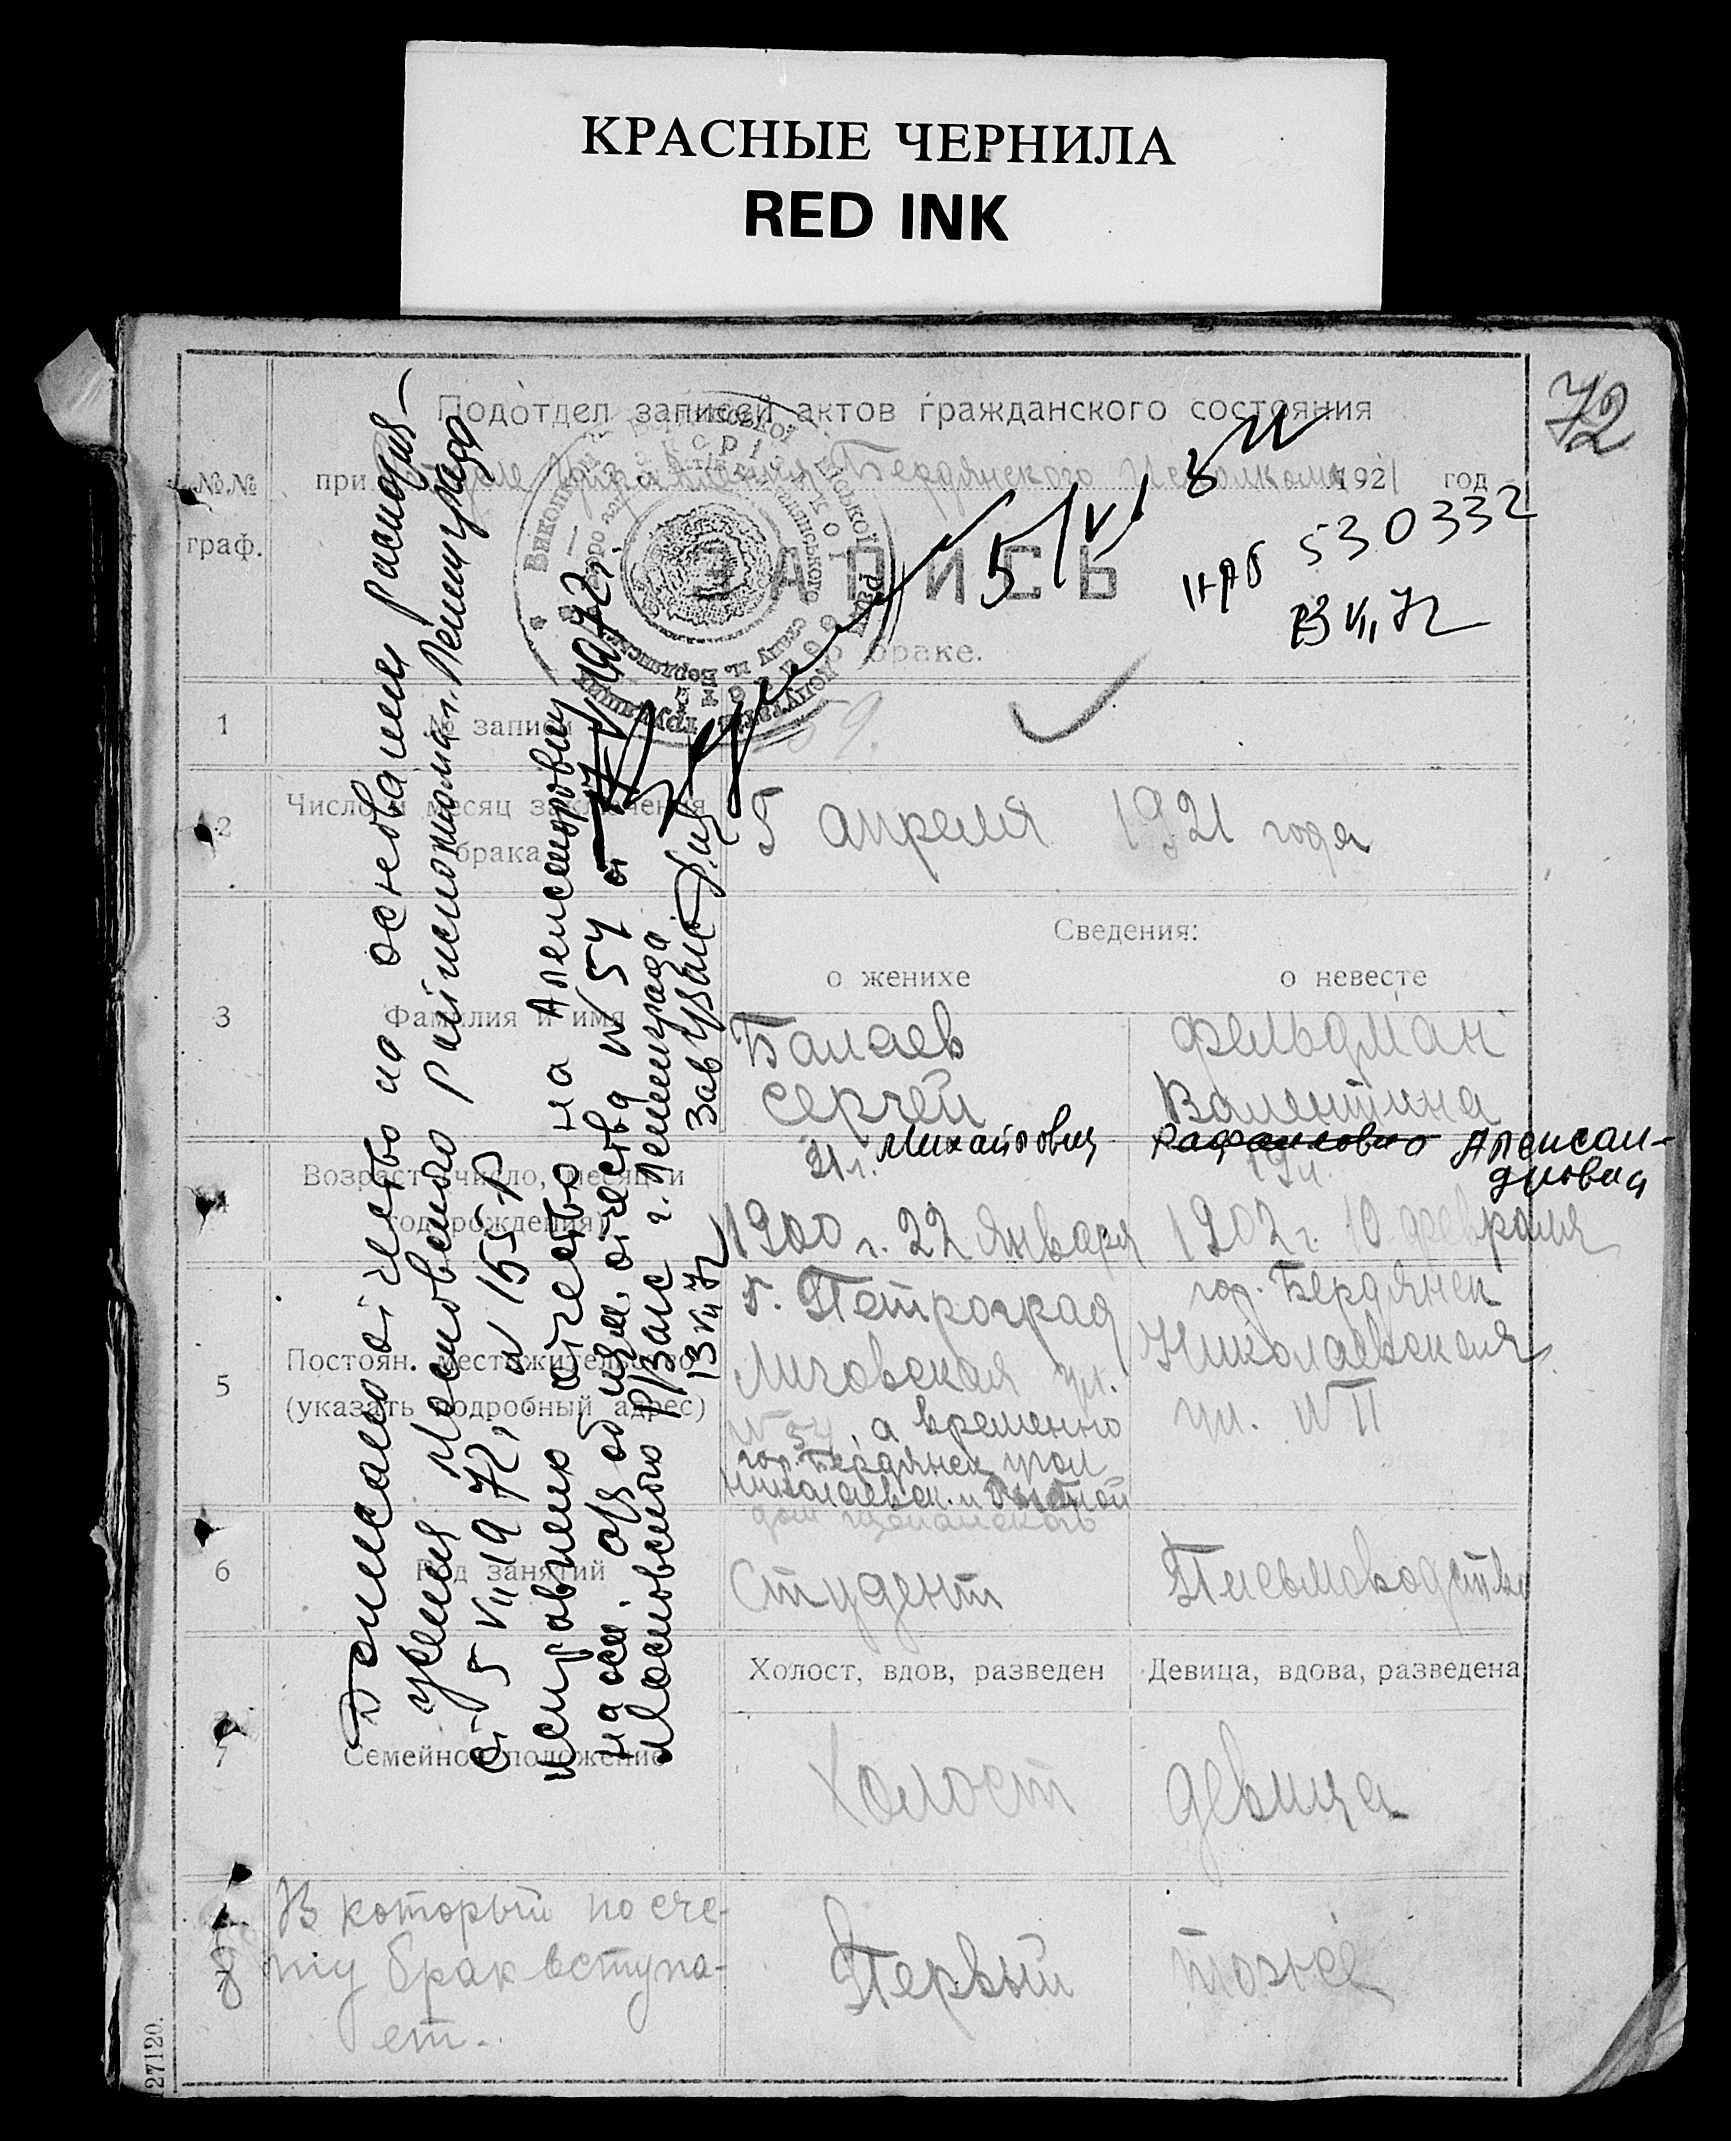 КРАСНЫЕ ЧЕРНИЛА
RED INK
72
Подотдел записей актов гражданского состояния
№№ граф.
при Управления Бердянского Исполкома 1921 год
ЗАПИСЬ
о браке.
5/VI
530332
13 VII 72
1 № записи 59.
2 Число и месяц заключения
брака
5 апреля 1921 года
Сведения:
о женихе о невесте
3 Фамилия и имя
Балаев Фельдман
Сергей Валентина
Михайлович Рафаиловна Алексан-
дровна
4 Возраст (число, месяц и
год рождения)
21 г. 19 л.
1900 г. 22 Января 1902 г. 10 февраля
5 Постоян. местожительство
(указать подробный адрес)
г. Петроград гор. Бердянск
Лиговская ул. Николаевская
№ 54, а временно ул. №
гор. Бердянск угол
Николаевск. и
дом
6 Род занятий
Студент Письмоводство
Холост, вдов, разведен Девица, вдова, разведена
7 Семейное положение
Холост девица
8 В который по сче-
ту брак вступа-
ет.
Первый тоже
127120.
Дописано отчество на основании распоря-
жения Московского Райисполкома г. Ленинграда
от 5 VII 1972, № 155-р
исправлено отчество на Александровну
на осн. об изм. отчества № 54 от 1972 г.
Московского р/Загс г. Ленинграда
13 VII 72 Зав